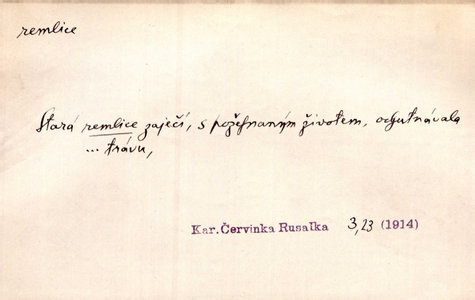 remlice
Stará remlice zaječí, s požehnaným životem,
... trávu,
Kar. Červinka Rusalka 3,23 (1914)